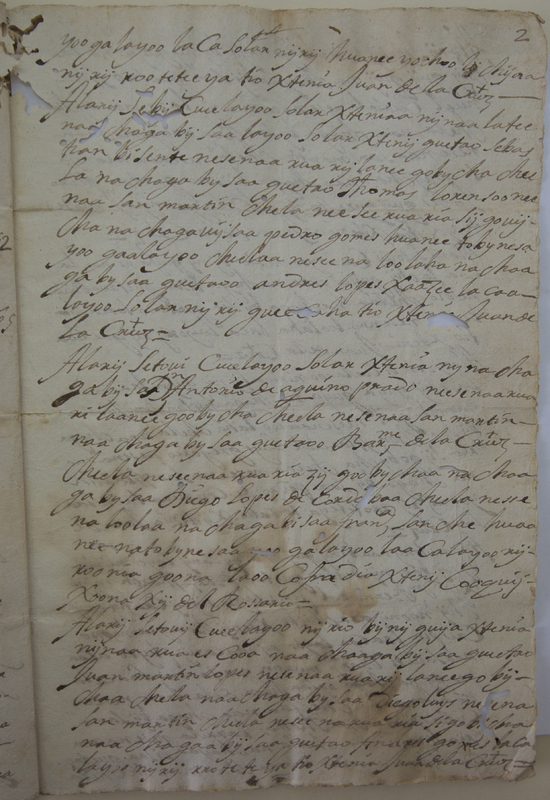 2
yoo galayoo la Ca Solar nij rij huanee yochoo bi chijaa
nij rij xoo tete ya tio Xtenia Juan de la Cruz
Alarij Setobij Cuelayoo Solar Xtenia nij naa latee
naa chaga bij saa layoo Solar Xtenij quetao Sebas
tian Bisente nesenaa xua rij lanee goby cha chee
La na chaga by saa quetao Thomas lorenso nee
naa San martin Chela nee see xua xia sij gobij
cha na chaga vij saa pedro gomes huanee toby nesa
yoo gaalayoo cheelaa nesee na loo laha na chaa
ga by saa quetao andres lopes la caa
layoo Solar nij rij que ha tio Xtenia Juan de
La Cruz =
Alarij Setovi Cuelayoo Solar Xtenia ny na cha
ga bij saa Dn Antonio de aquino prado nesenaa xua
ri laanee goo by cha Chela nesenaa San martin
naa chaga by saa quetao Barme de la Cruz
Chela nesenaa xua xia zij goo by chaa na chaa
ga by saa Diego lopes di chela nesse
na loo laa na chaga bi saa franco San che huaa
nee na toby ne saa yoo galayoo laa Ca layoo rij
xoo nia goo na laoo Cofradia Xtenij Coquij
Xoona xij del Rosario =
Alarij Setovij Cuelayoo nij rio bij nij quija Xtenia
nij naa xua es Cooa naa chaaga bij saa quetao
Juan martin lopes nesenaa xua rij lanee go bij
chaa chela naa chaga by saa Diego luys nesena
San martin chela nese na xua xia si go bi cha
naa chagaa bij saa quetao gomes
layoo nij rij xoo te te ya tio Xtenia Juan de la Cruz =